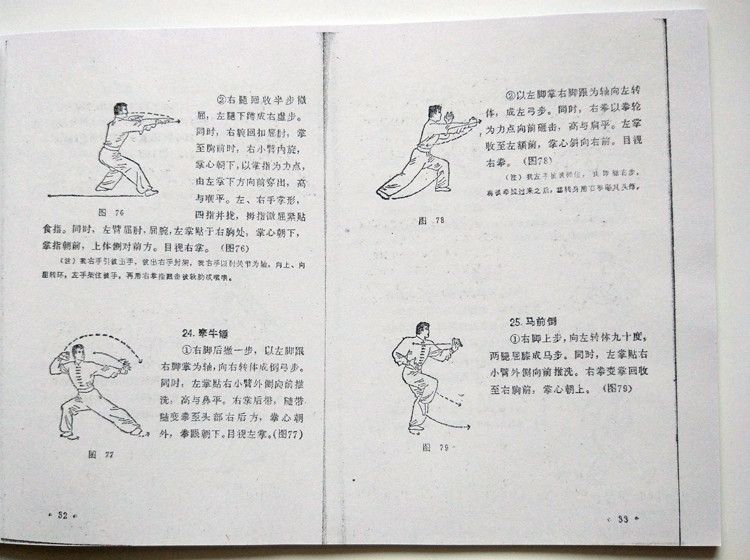 ②右腿回收半步微
屈，左腿下蹲成右虚步。
同时，右腕回扣屈肘，掌
至胸前时，右小臂内旋，
掌心朝下，以掌指为力点，
由左掌下方向前穿出，高
与喉平。左、右手掌形，
四指并拢，拇指微屈紧贴
图 76
食指。同时，左臂屈肘，屈腕，左掌贴于右胸处，掌心朝下，
掌指朝前，上体侧对前方。目视右掌。（图76）
（注）我右手引彼出手，彼出右手封架，我右手以肘关节为轴，向上、向
里转环，左手架住彼手，再用右掌指戳击彼软肋或喉咙。
24. 牵牛锤
①右脚后撤一步，以左脚跟
右脚掌为轴，向右转体成倒弓步。
同时，左掌贴右小臂外侧向前推
洗，高与鼻平。右掌后带，随带
随变拳至头部右后方，拳心朝
外，拳眼朝下。目视左掌。（图77）
图 77
• 32 •
②以左脚掌右脚跟为轴向左转
体，成左弓步。同时，右拳以拳轮
为力点向前砸击，高与肩平。左掌
收至左额前，掌心斜向右前。目视
右拳。（图78）
图 78
25. 马前倒
①右脚上步，向左转体九十度，
两腿屈膝成马步。同时，左掌贴右
小臂外侧向前推洗。右拳变掌回收
至右胸前，掌心朝上。（图79）
图 79
• 33 •